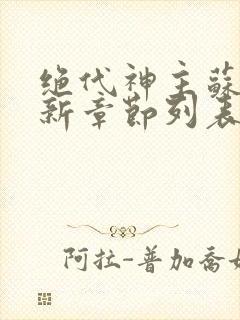 绝代神主蘇
新章節列表
阿拉-普加喬